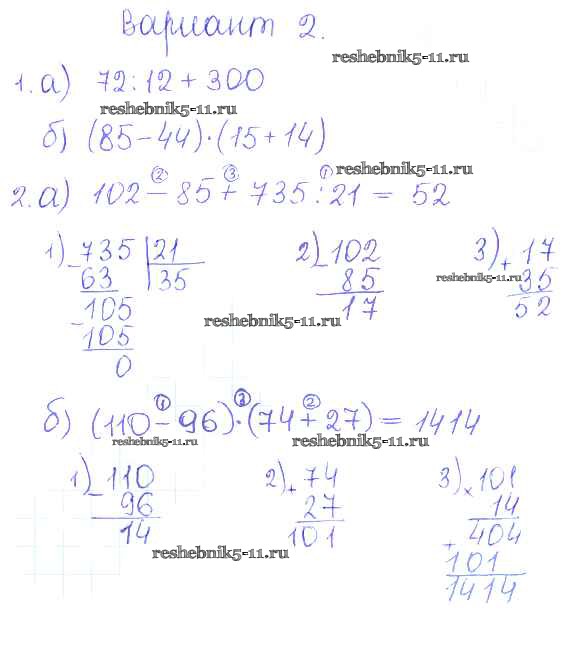 Вариант 2.
reshebnik5-11.ru
1. а) 72:12 + 300
reshebnik5-11.ru
б) (85 - 44)·(15 + 14)
reshebnik5-11.ru
② ③ ①
2. а) 102 - 85 + 735 : 21 = 52
1) - 735 | 21 2) - 102 3) + 17
63 35 85 reshebnik5-11.ru 35
- 105 17 52
105 reshebnik5-11.ru
0
① ③ ②
б) (110 - 96)·(74 + 27) = 1414
reshebnik5-11.ru reshebnik5-11.ru
1) - 110 2) + 74 3) × 101
96 27 14
14 101 + 404
reshebnik5-11.ru 101
1414